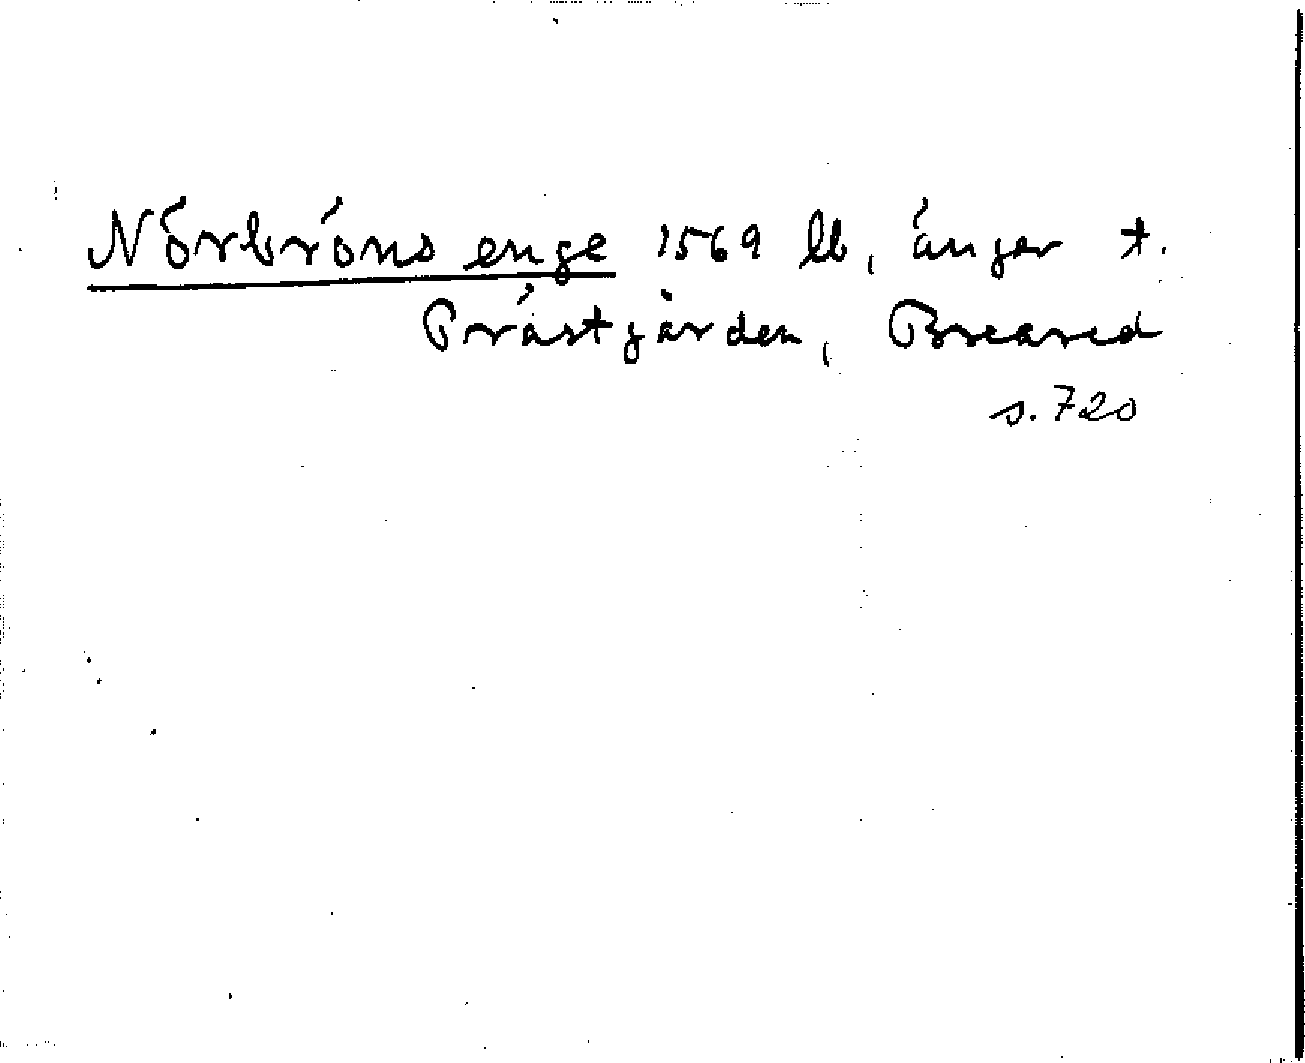 Nörbröns enge 1569 lb, änger t.
Prästgården, Breared
s. 720